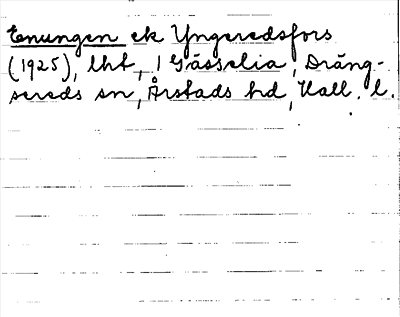 Enungen ek Yngeredsfors
(1925), lht, 1 Gässelia, Dräng-
sereds sn, Årstads hd, Hall. l.